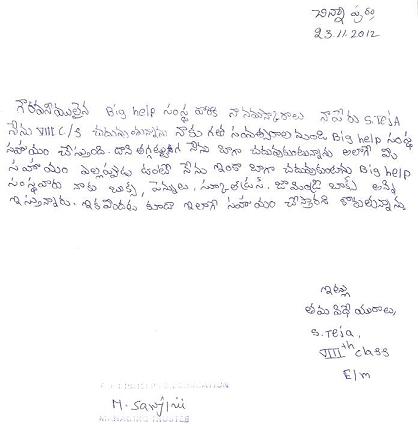 చిన్నాపురం
23.11.2012
గౌరవనీయులైన Big help సంస్థ వారికి నా నమస్కారాలు నాపేరు S.Teja
నేను VIII C/S చదువుతున్నాను నాకు గత సంవత్సరాల నుండి Big help సంస్థ
సహాయం చేస్తుంది. దాని తగ్గట్టుగా నేను బాగా చదువుకుంటున్నాను అలాగే మీ
సహాయం ఎల్లప్పుడు ఉంటే నేను ఇంకా బాగా చదువుకుంటాను Big help
సంస్థవారు నాకు బుక్స్, పెన్నులు, స్కూల్ డ్రస్. జామెంట్రి బాక్స్ అన్ని
ఇస్తున్నారు. ఇకముందు కూడా ఇలాగే సహాయం చేస్తారని కోరుతున్నాను
ఇట్లు
తమ విధేయురాలు,
S.Teja,
VIIIth class
E/m
M. Sarojini
MANAGING TRUSTEE